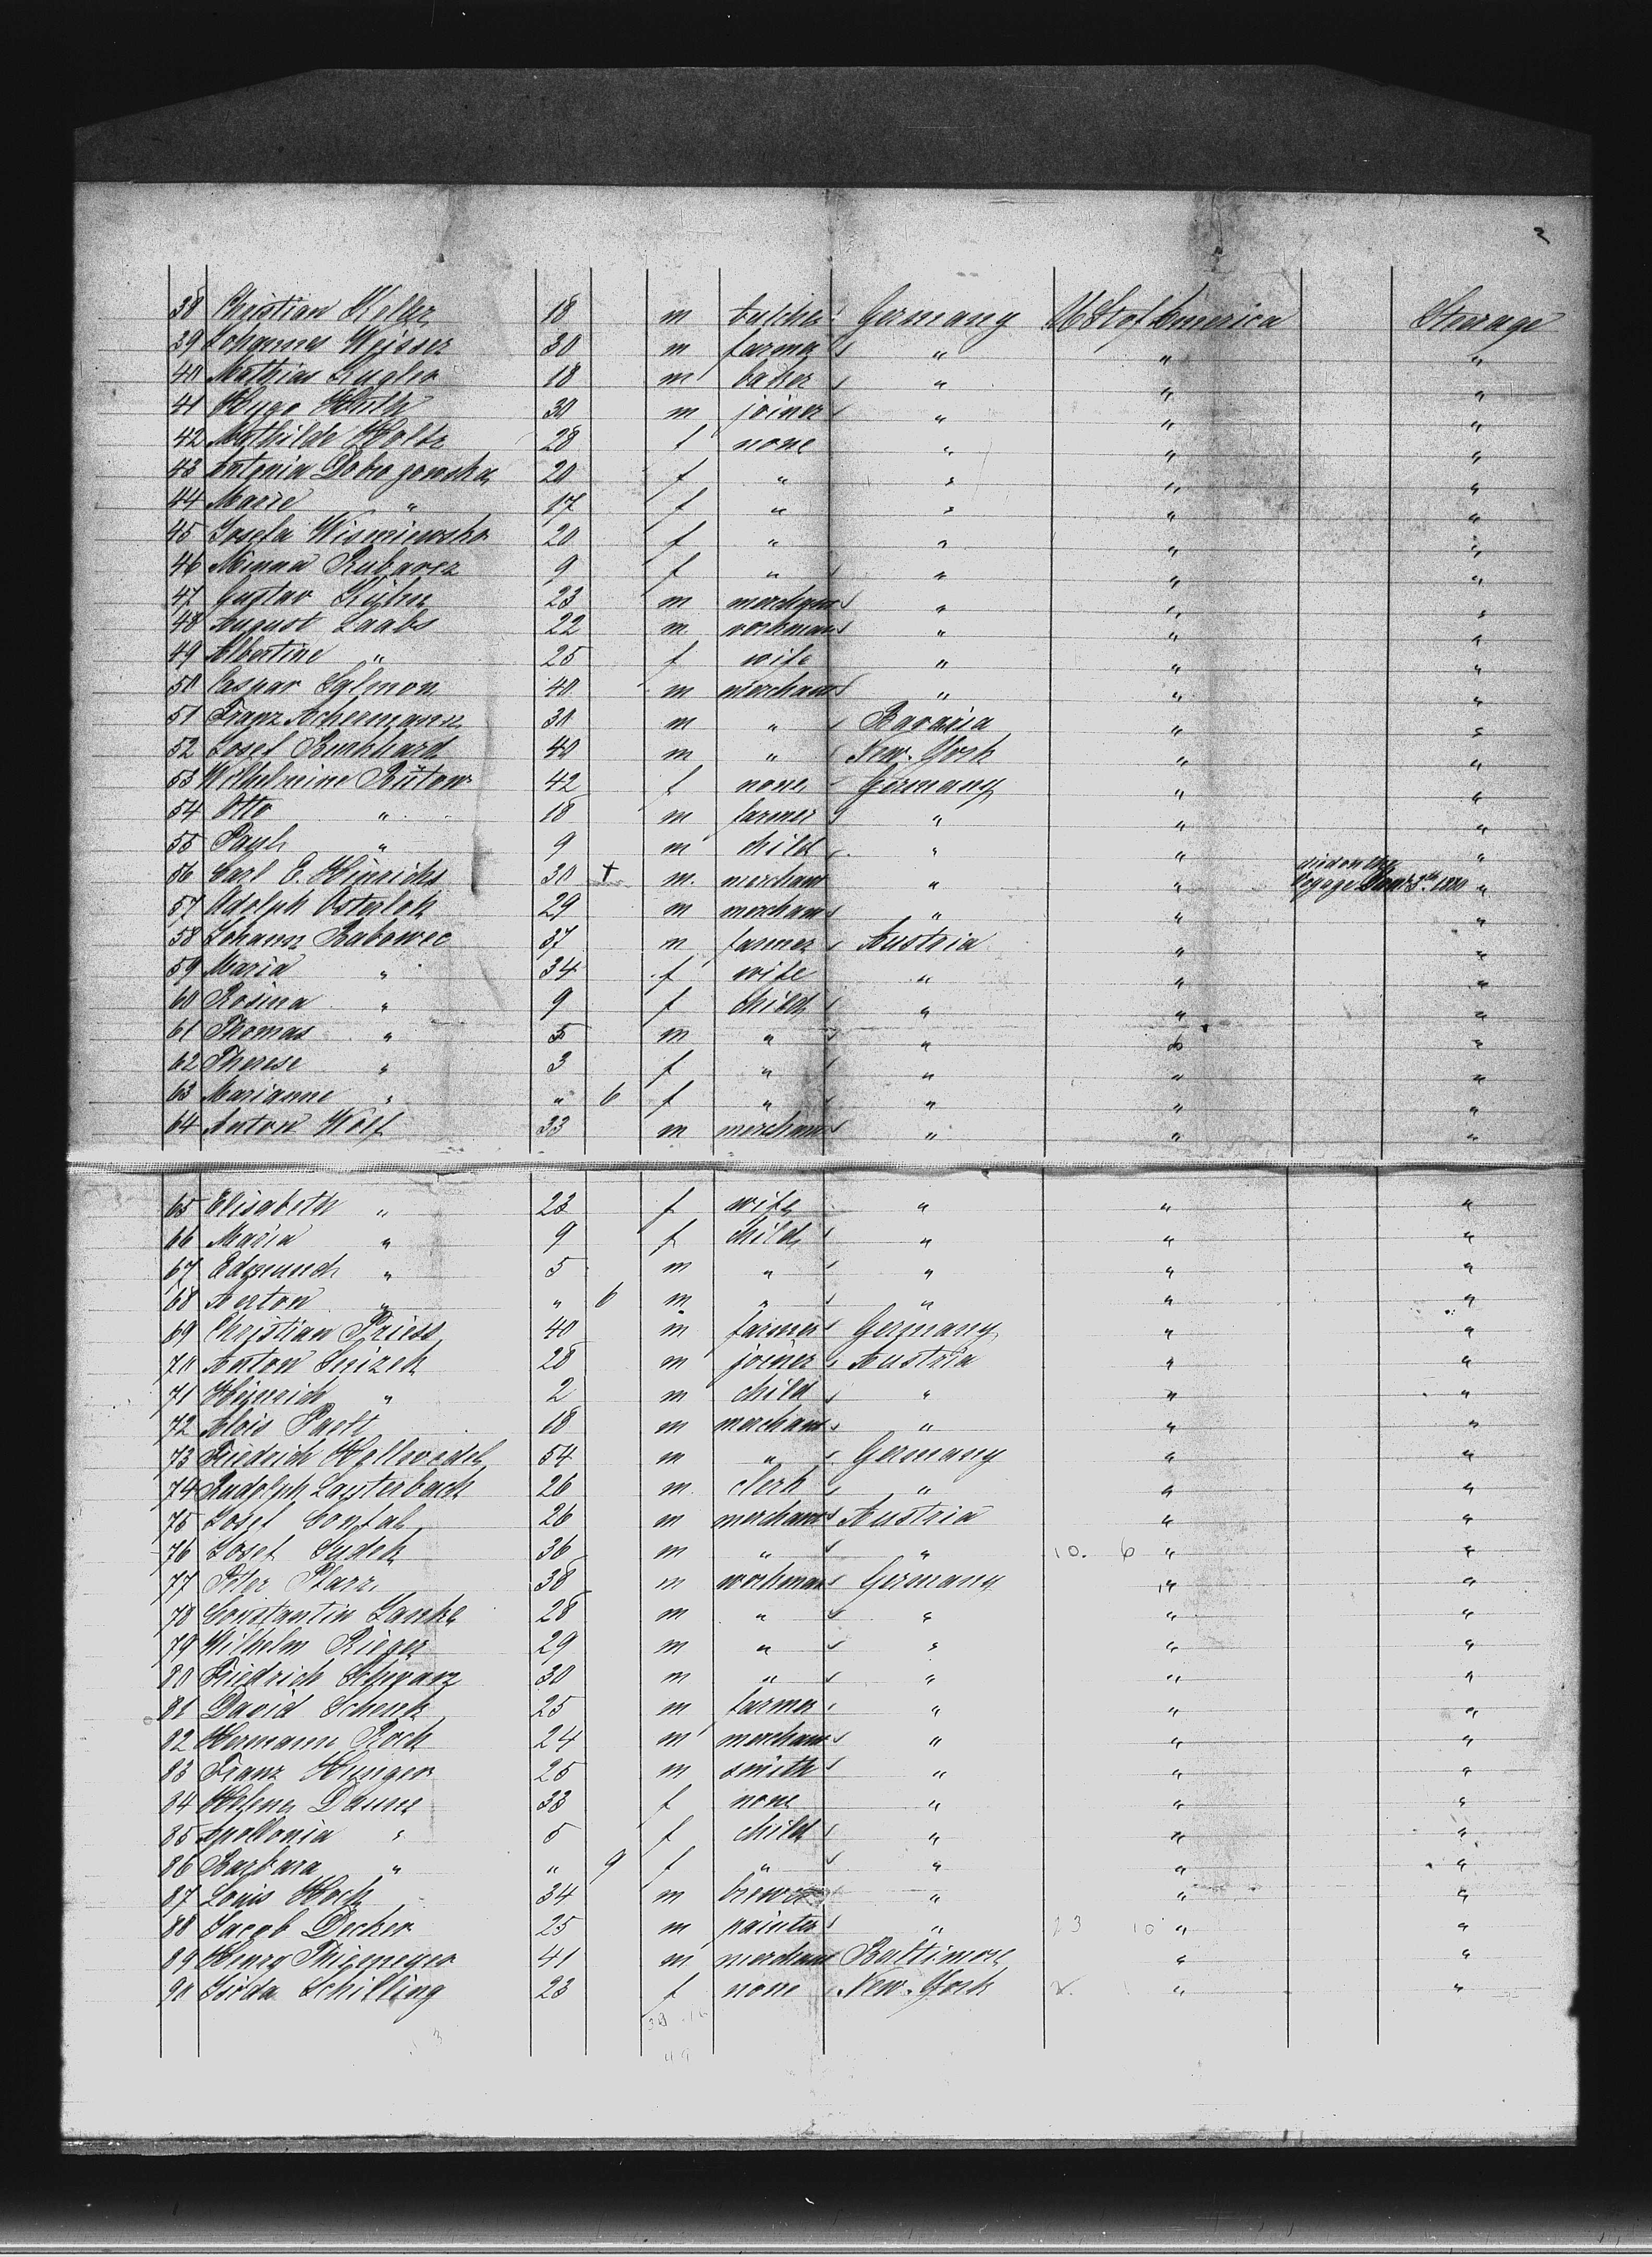 2
38 Christian Keller 18 m butcher Germany U St of America Sterage
39 Johannes Weisser 30 m farmer " " "
40 Mathias Kugler 18 m baker " " "
41 Hugo Huth 30 m joiner " " "
42 Mathilde Holtz 28 f none " " "
43 Antonia 20 f " " " "
44 Marie " 17 f " " " "
45 Josefa Wisniewska 20 f " " " "
46 Minna 9 f " " " "
47 Gustav 23 m merchant " " "
48 August Laabs 22 m workman " " "
49 Albertine " 25 f wife " " "
50 Caspar Salmon 40 m merchant " " "
51 Franz Achermann 31 m " Bavaria " "
52 Josef Burkhard 40 m " New-York " "
53 Wilhelmine Bütow 42 f none Germany " "
54 Otto " 18 m farmer " " "
55 Paul " 9 m child " " "
56 Carl E. Hinrichs 30 + m. merchant " " died on the voyage 1880 "
57 Adolph 29 m merchant " " "
58 Johann Babowec 37 m farmer Austria " "
59 Maria " 34 f wife " " "
60 Rosina " 9 f child " " "
61 Thomas " 5 m " " " "
62 Therese " 3 f " " " "
63 Marianne " " 6 f " " " "
64 Anton Wolf 33 m merchant " " "
65 Elisabeth " 23 f wife " " "
66 Maria " 9 f child " " "
67 Edmund " 5 m " " " "
68 Anton " " 6 m " " " "
69 Christian Priess 40 m farmer Germany " "
70 Anton 28 m joiner Austria " "
71 Heinrich " 2 m child " " "
72 Alois 18 m merchant " " "
73 Friedrich 54 m " Germany " "
74 Rudolph Lauterbach 26 m clerk " " "
75 Josef 26 m merchant Austria " "
76 Josef Sudek 36 m " " 10. 6 " "
77 Peter 38 m workman Germany " "
78 Constantin Lanke 28 m " " " "
79 Wilhelm Rieger 29 m " " " "
80 Friedrich Schwarz 30 m " " " "
81 David Schenk 25 m farmer " " "
82 Hermann Koch 24 m merchant " " "
83 Franz Hunger 25 m smith " " "
84 Helena 33 f none " " "
85 Apollonia " 5 f child " " "
86 Barbara " " 9 f " " " "
87 Louis Hock 34 m brewer " " "
88 Jacob Decker 25 m painter " 23 10 " "
89 Henry Thiemeyer 41 m merchant Baltimore " "
90 Schilling 23 f none New-York " "